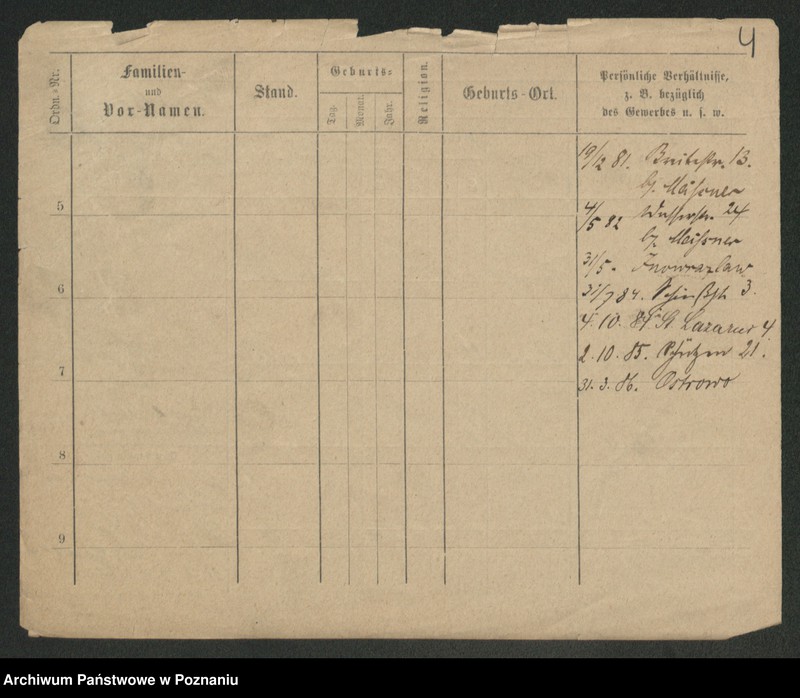 4
Ordn.-Nr.
Familien-
und
Vor-Namen.
Stand.
Geburts-
Tag.
Monat.
Jahr.
Religion.
Geburts-Ort.
Persönliche Verhältnisse,
z. B. bezüglich
des Gewerbes u. s. w.
19/12 81. Breitestr. 13.
bz. Meißner
5
4/5 82 Wasserstr. 24
bz. Meißner
31/5. Inowrazlaw
6
31/7 84. Schießstr. 3.
4. 10. 84 St. Lazarus 4
2. 10. 85. Schützen 21.
7
31. 3. 86. Ostrowo
8
9
Archiwum Państwowe w Poznaniu